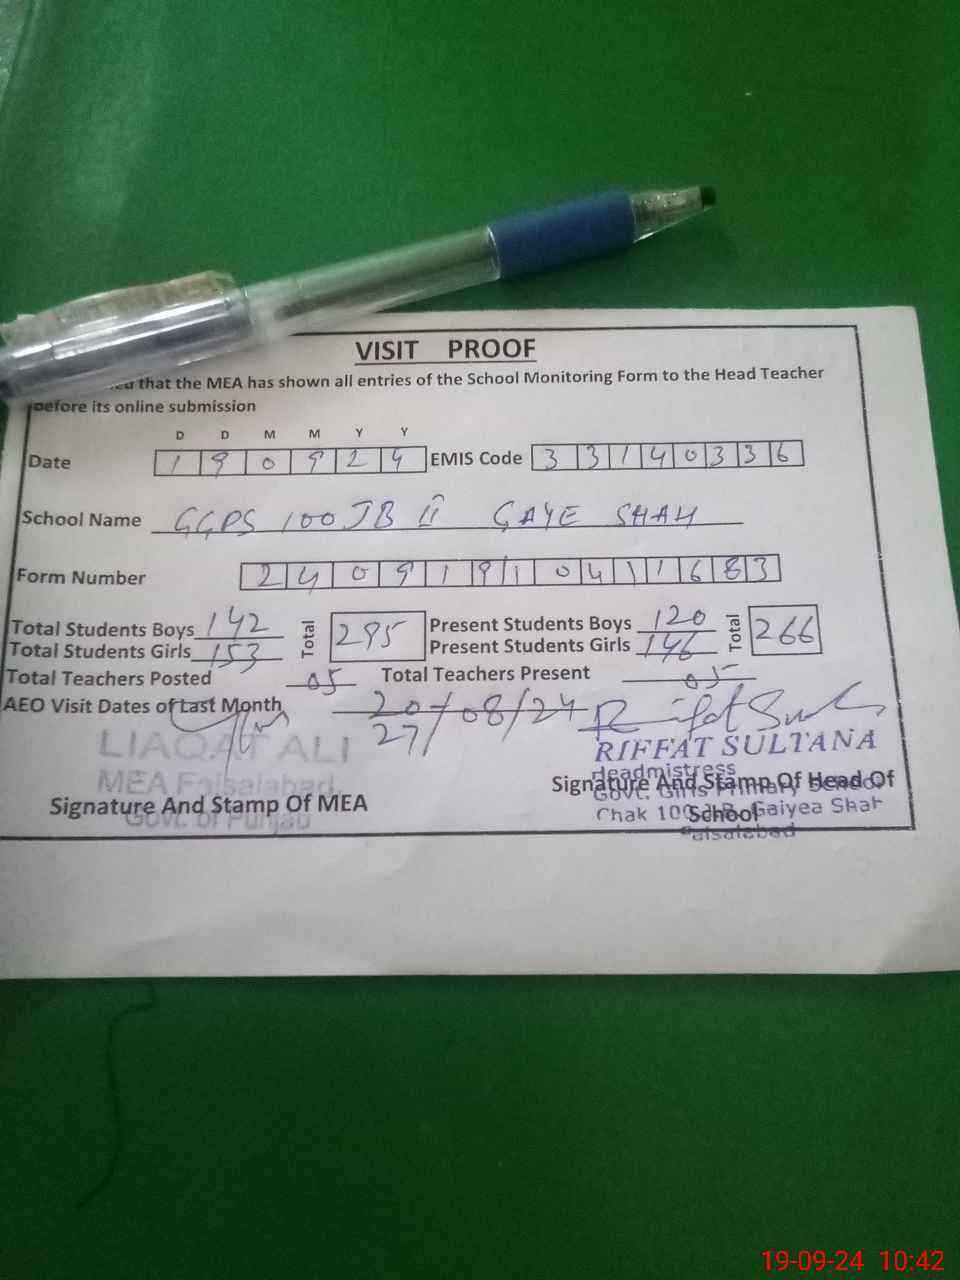 VISIT PROOF
that the MEA has shown all entries of the School Monitoring Form to the Head Teacher
before its online submission
D D M M Y Y
Date 1 9 0 9 2 4 EMIS Code 3 3 1 4 0 3 3 6
School Name GGPS 100 JB II GAYE SHAH
Form Number 2 4 0 9 1 9 1 0 4 1 1 6 8 3
Total Students Boys 142 Total 295 Present Students Boys 120 Total 266
Total Students Girls 153 Present Students Girls 146
Total Teachers Posted 05 Total Teachers Present 05
AEO Visit Dates of Last Month 20/08/24
27/
LIAQAT ALI
MEA Faisalabad
Govt. of Punjab
Signature And Stamp Of MEA
Riffat Sul
RIFFAT SULTANA
Headmistress
Govt. Girls Primary School
Chak 100 J.B. Gaiyea Shah
Faisalabad
Signature And Stamp Of Head Of
School
19-09-24 10:42